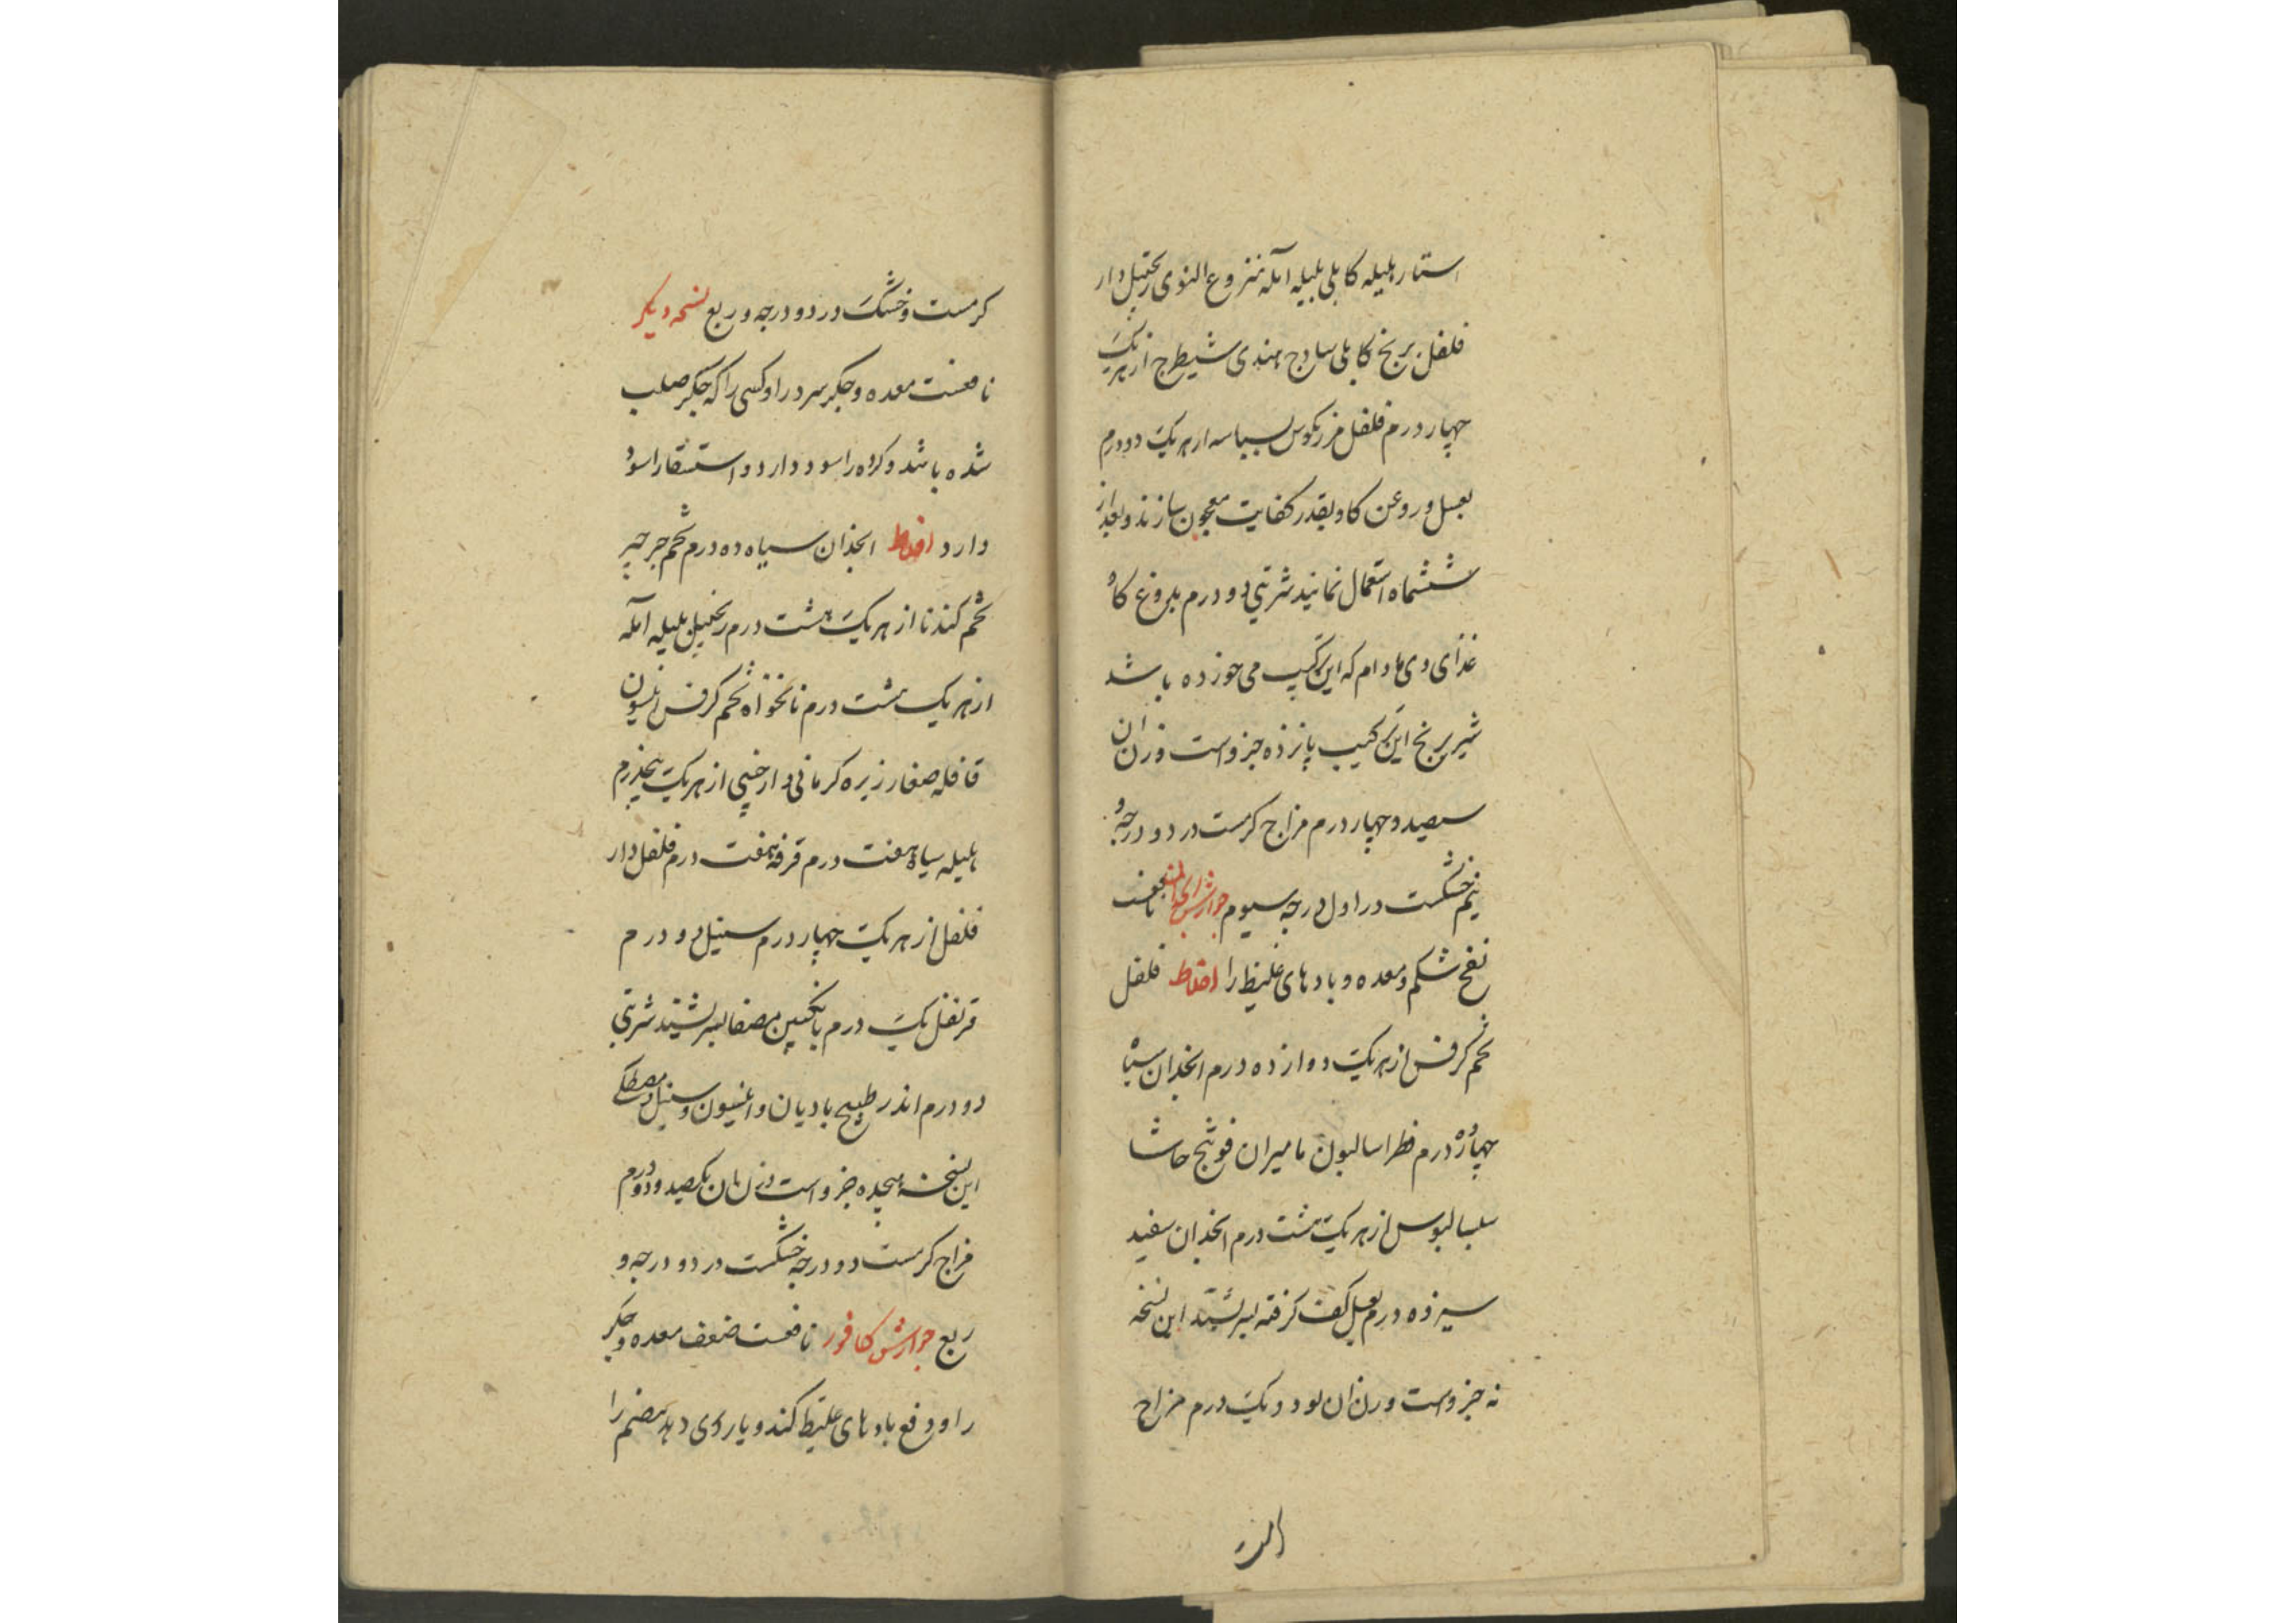 استار هلیله کابلی بلیله آمله منزوع النوی زنجبیل دار
فلفل برنج کابلی ساذج هندی شیطرج از هریک
چهار درم فلفل مرزنکوس بسباسه از هریک دو درم
بعسل و روغن کاو بقدر کفایت معجون سازند و بعد از
ششماه استعمال نمایند شربتی دو درم بدوغ کاو
غذای وی مادام که این ترکیب می خورده باشد
شیر برنج این ترکیب پانزده جزو است وزن آن
سیصد و چهار درم مزاج کرمست در دو درجه و
نیم خشکست در اول درجه سیوم جوارش نافعست
نفخ شکم و معده و بادهای غلیظ را اخلاط فلفل
تخم کرفس از هریک دوازده درم انجدان سیاه
چهارده درم فطراسالیون مامیران فوتنج حاشا
سیسالیوس از هریک هشت درم انجدان سفید
سیزده درم بعسل کف کرفته بسرشند این نسخه
نه جزو است وزن آن نود و یک درم مزاج
کرمست و خشک در دو درجه و ربع نسخه دیکر
نافعست معده و جکر سرد را و کسی را که جکر صلب
شده باشد و کرده را سود دارد و استسقا را سود
دارد اخلاط انجدان سیاه ده درم تخم جرجیر
تخم کندنا از هریک هشت درم زنجبیل بلیله آمله
از هریک هشت درم نانخواه تخم کرفس انیسون
قاقله صغار زیره کرمانی دارچینی از هریک پنجدرم
هلیله سیاه هفت درم قرفه هفت درم فلفل دار
فلفل از هریک چهار درم سنبل دو درم
قرنفل یک درم بانکبین مصفا بسرشند شربتی
دو درم اندر طبیخ بادیان و انیسون و سنبل و مصطکی
این نسخه هیجده جزو است وزن آن یکصد و دو درم
مزاج کرمست دو درجه خشکست در دو درجه و
ربع جوارش کافور نافعست ضعف معده و جکر
را و دفع بادهای غلیظ کند و یاری دهد هضم را